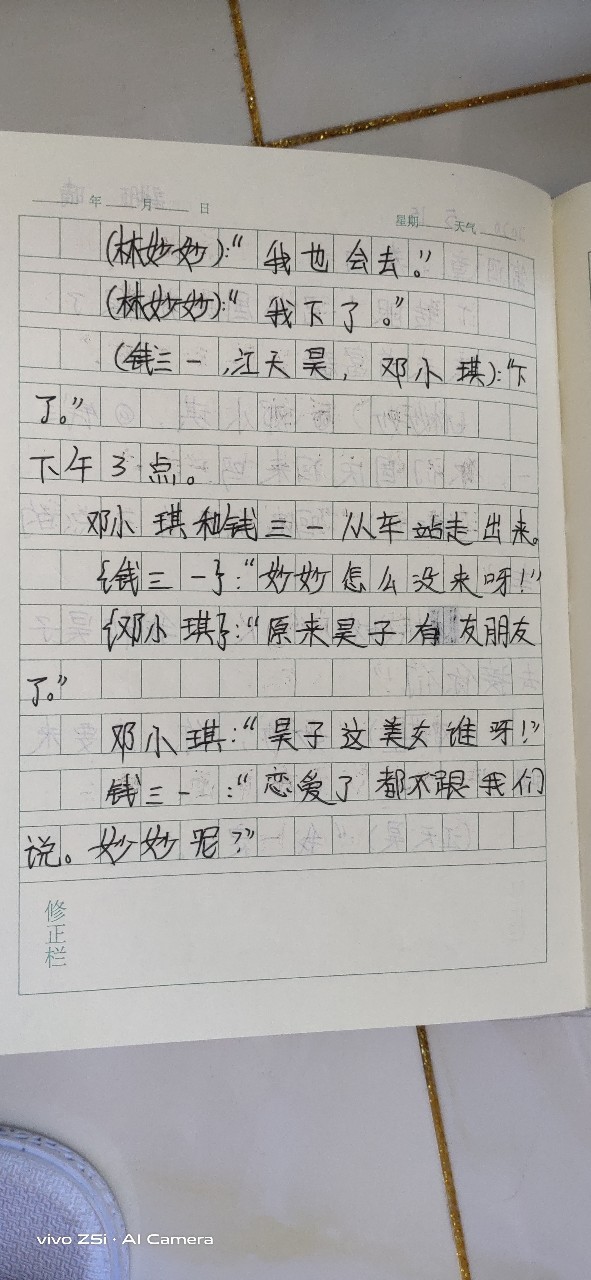 年 月 日 星期 天气
(林妙妙):“我也会去。”
(林妙妙):“我下了。”
(钱三一,江天昊,邓小琪):“下
了。”
下午3点。
邓小琪和钱三一从车站走出来。
{钱三一}:“妙妙怎么没来呀!”
{邓小琪}:“原来昊子有友朋友
了。”
邓小琪:“昊子这美女谁呀!”
钱三一:“恋爱了都不跟我们
说。妙妙呢?”
修正栏
vivo Z5i · AI Camera